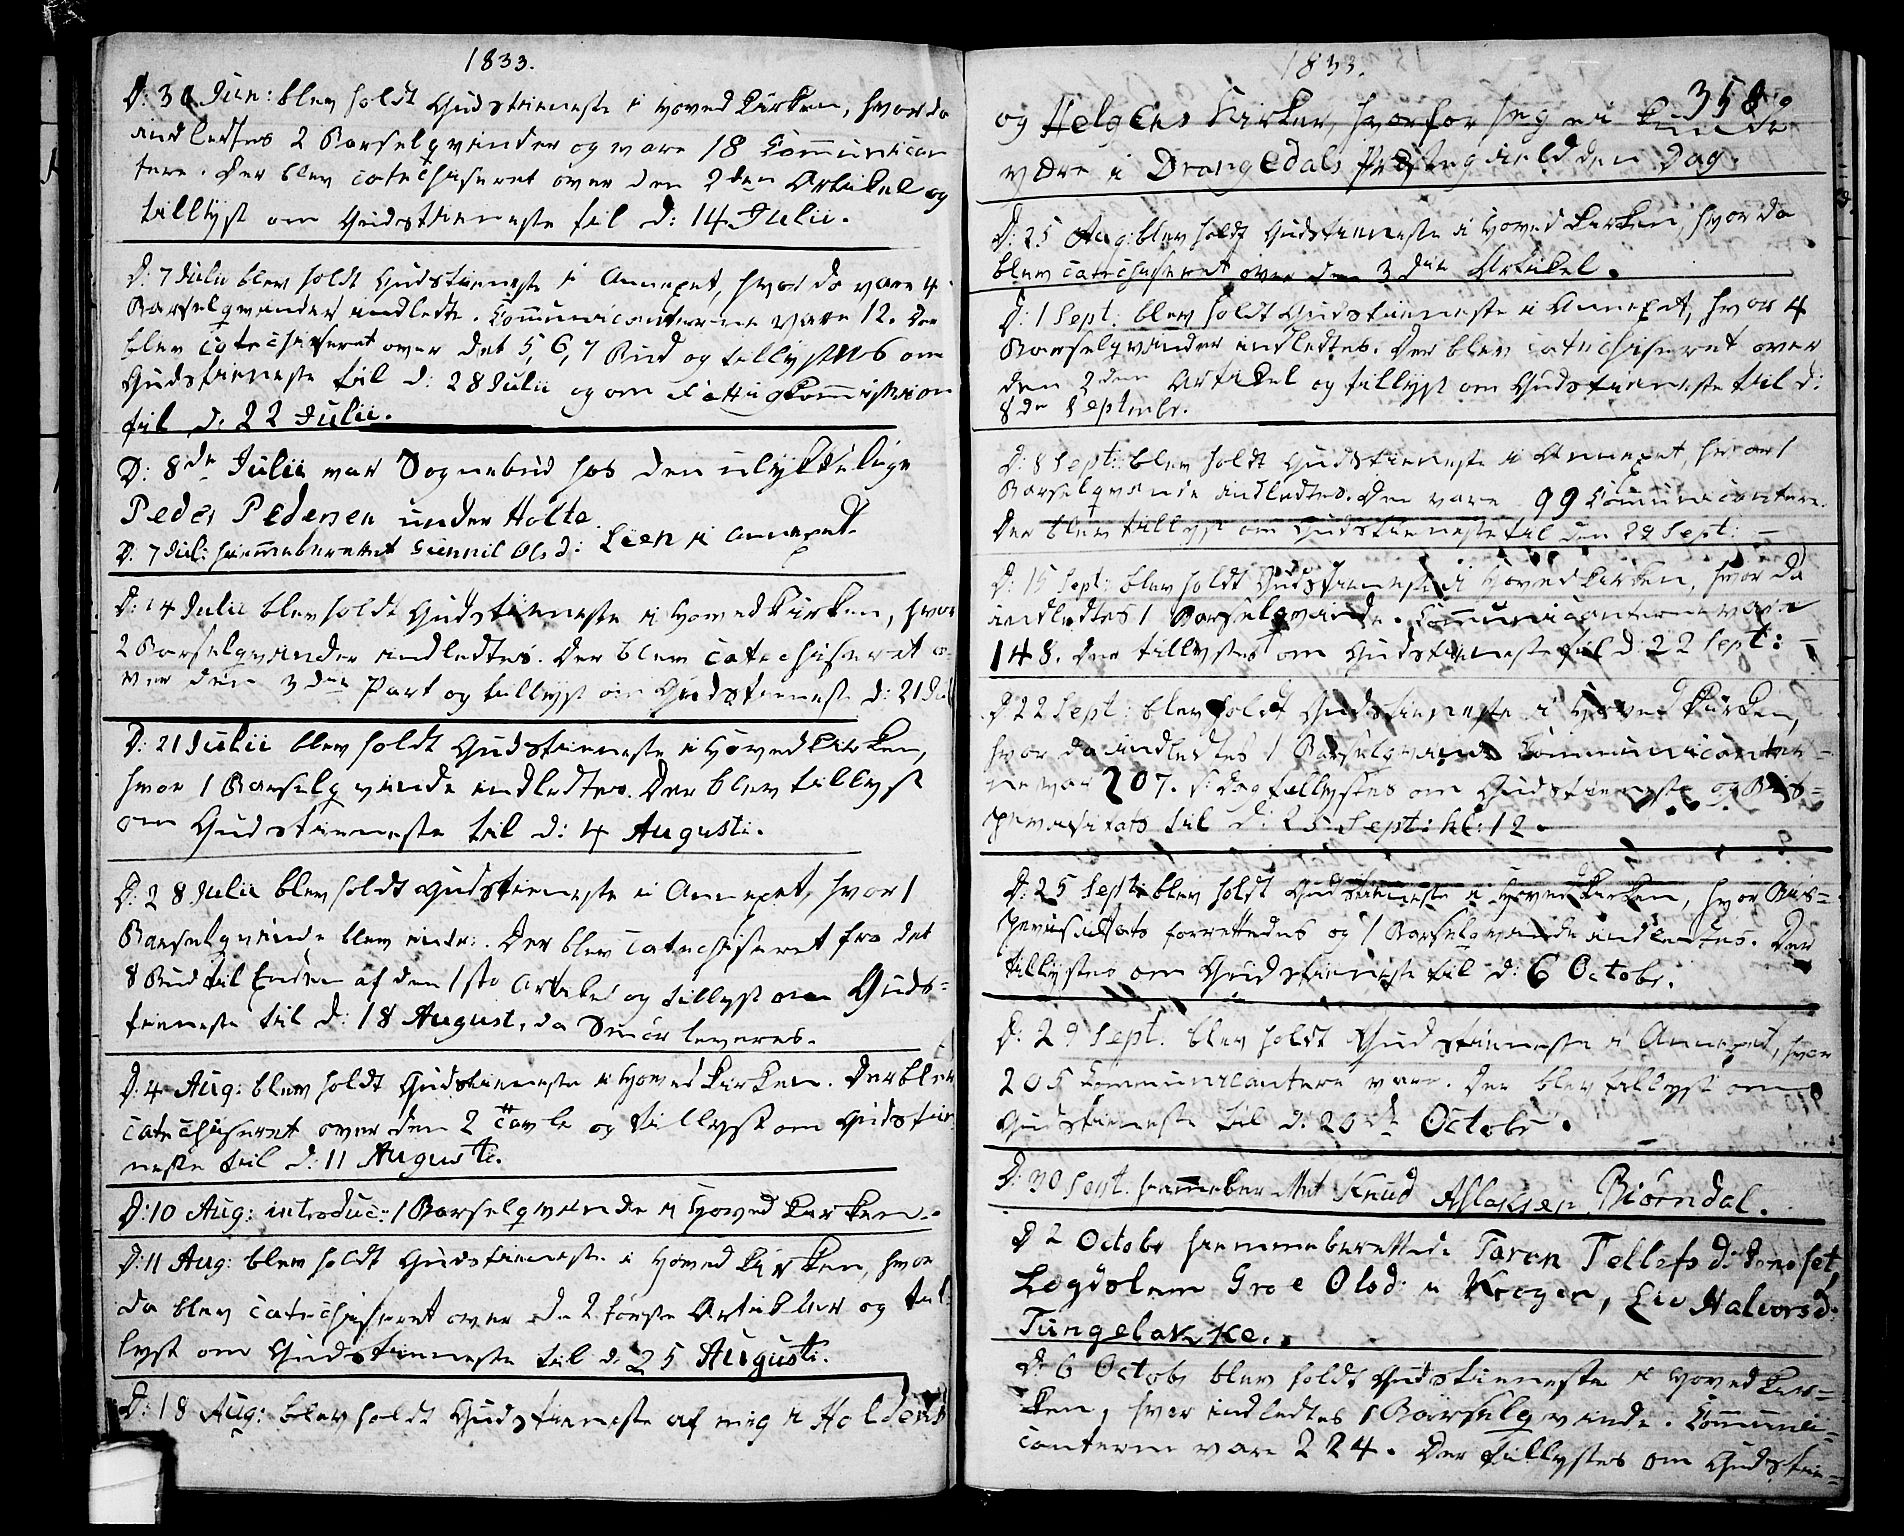 1833.
D: 30 Jun: blev holdt Gudstieneste i Hovedkirken, hvor da
indledtes 2 Barselqvinder og vare 18 Communican
tere. Der blev catechiseret over den 2den Artikel og
tillyst om Gudstieneste til d: 14 Julii.
D: 7 Julii blev holdt Gudstieneste i Annexet, hvor da vare 4
Barselqvinder indledte. Communicanterne vare 12. Der
blev catechiseret over det 5, 6, 7 Bud og tillystes om
Gudstieneste til d: 28 Julii og om Fattigkommission
til d: 22 Julii.
D: 8de Julii var Sognebud hos den ulykkelige
Peder Pedersen under Holte
D: 7 Jul: hiemmeberettet Gunnil Olsd: Lien i Annexet.
D: 14 Julii blev holdt Gudstieneste i Hovedkirken, hvor
2 Barselqvinder indledtes. Der blev catechiseret o
ver den 3die Part og tillyst om Gudstieneste d: 21 Jul
D: 21 Julii blev holdt Gudstieneste i Hovedkirken,
hvor 1 Barselqvinde indledtes. Der blev tillyst
om Gudstieneste til d: 4 Augusti.
D: 28 Julii blev holdt Gudstieneste i Annexet, hvor 1
Barselqvinde blev indl:. Der blev catechiseret fra det
8 Bud til Enden af den 1ste Artikel og tillyst om Guds=
tieneste til d: 18 August, da Smør leveres.
D: 4 Aug: blev holdt Gudstieneste i Hovedkirken. Der blev
catechiseret over den 2 Tavle og tillyst om Gudstie
neste til d: 11 Augusti.
D: 10 Aug: introduc: 1 Barselqvinde i Hovedkirken.
D: 11 Aug: blev holdt Gudstieneste i Hovedkirken, hvor
da blev catechiseret over de 2 første Artikler og til
lyst om Gudstieneste til d. 25 Augusti.
D: 18 Aug: blev holdt Gudstieneste af mig i Holdens
1833.
358
og Helgens Kirker, hvorfor jeg ei kunde
være i Drangedals Præstegield den Dag.
D: 25 Aug: blev holdt Gudstieneste i Hovedkirken, hvor da
blev catechiseret over den 3die Artikel.
D: 1 Sept: blev holdt Gudstieneste i Annexet, hvor 4
Barselqvinder indledtes. Der blev catechiseret over
den 2den Artikel og tillyst om Gudstieneste til d:
8de Septmbr.
D: 8 Sept: blev holdt Gudstieneste i Annexet, hvor 1
Barselqvinde indledtes. Der vare 99 Communicantere.
Der blev tillyst om Gudstieneste til den 29 Sept:
D: 15 Sept: blev holdt Gudstieneste i Hovedkirken, hvor da
indledtes 1 Barselqvinde. Communicanterne vare
148. Der tillystes om Gudstieneste til d: 22 Sept:
D 22 Sept: blev holdt Gudstieneste i Hovedkirken,
hvor da indledtes 1 Barselqvinde Communicanter=
ne var 207. s: Dag tillystes om Gudstieneste og Bis=
pevisitats til d: 25 Sept: kl: 12.
D: 25 Sept: blev holdt Gudstieneste i Hovedkirken, hvor Bis=
pevisitats forrettedes og 1 Barselqvinde indledtes. Der
tillystes om Gudstieneste til d: 6 Octobr.
D: 29 Sept. blev holdt Gudstieneste i Annexet, hvor
205 Communicantere vare. Der blev tillyst om
Gudstieneste til d. 20de Octobr.
D: 30 Sept. hiemmeberettet Knud Aslaksen Biørndal.
D 2 Octobr hiemmeberettede Taran Tellefsd:
Lægdslem Groe Olsd: i Krogen, Liv Halvorsd:
Tungelakke.
D: 6 Octobr blev holdt Gudstieneste i Hovedkir=
ken, hvor indledtes 1 Barselqvinde. Communi=
canterne vare 224. Der tillystes om Gudstie=